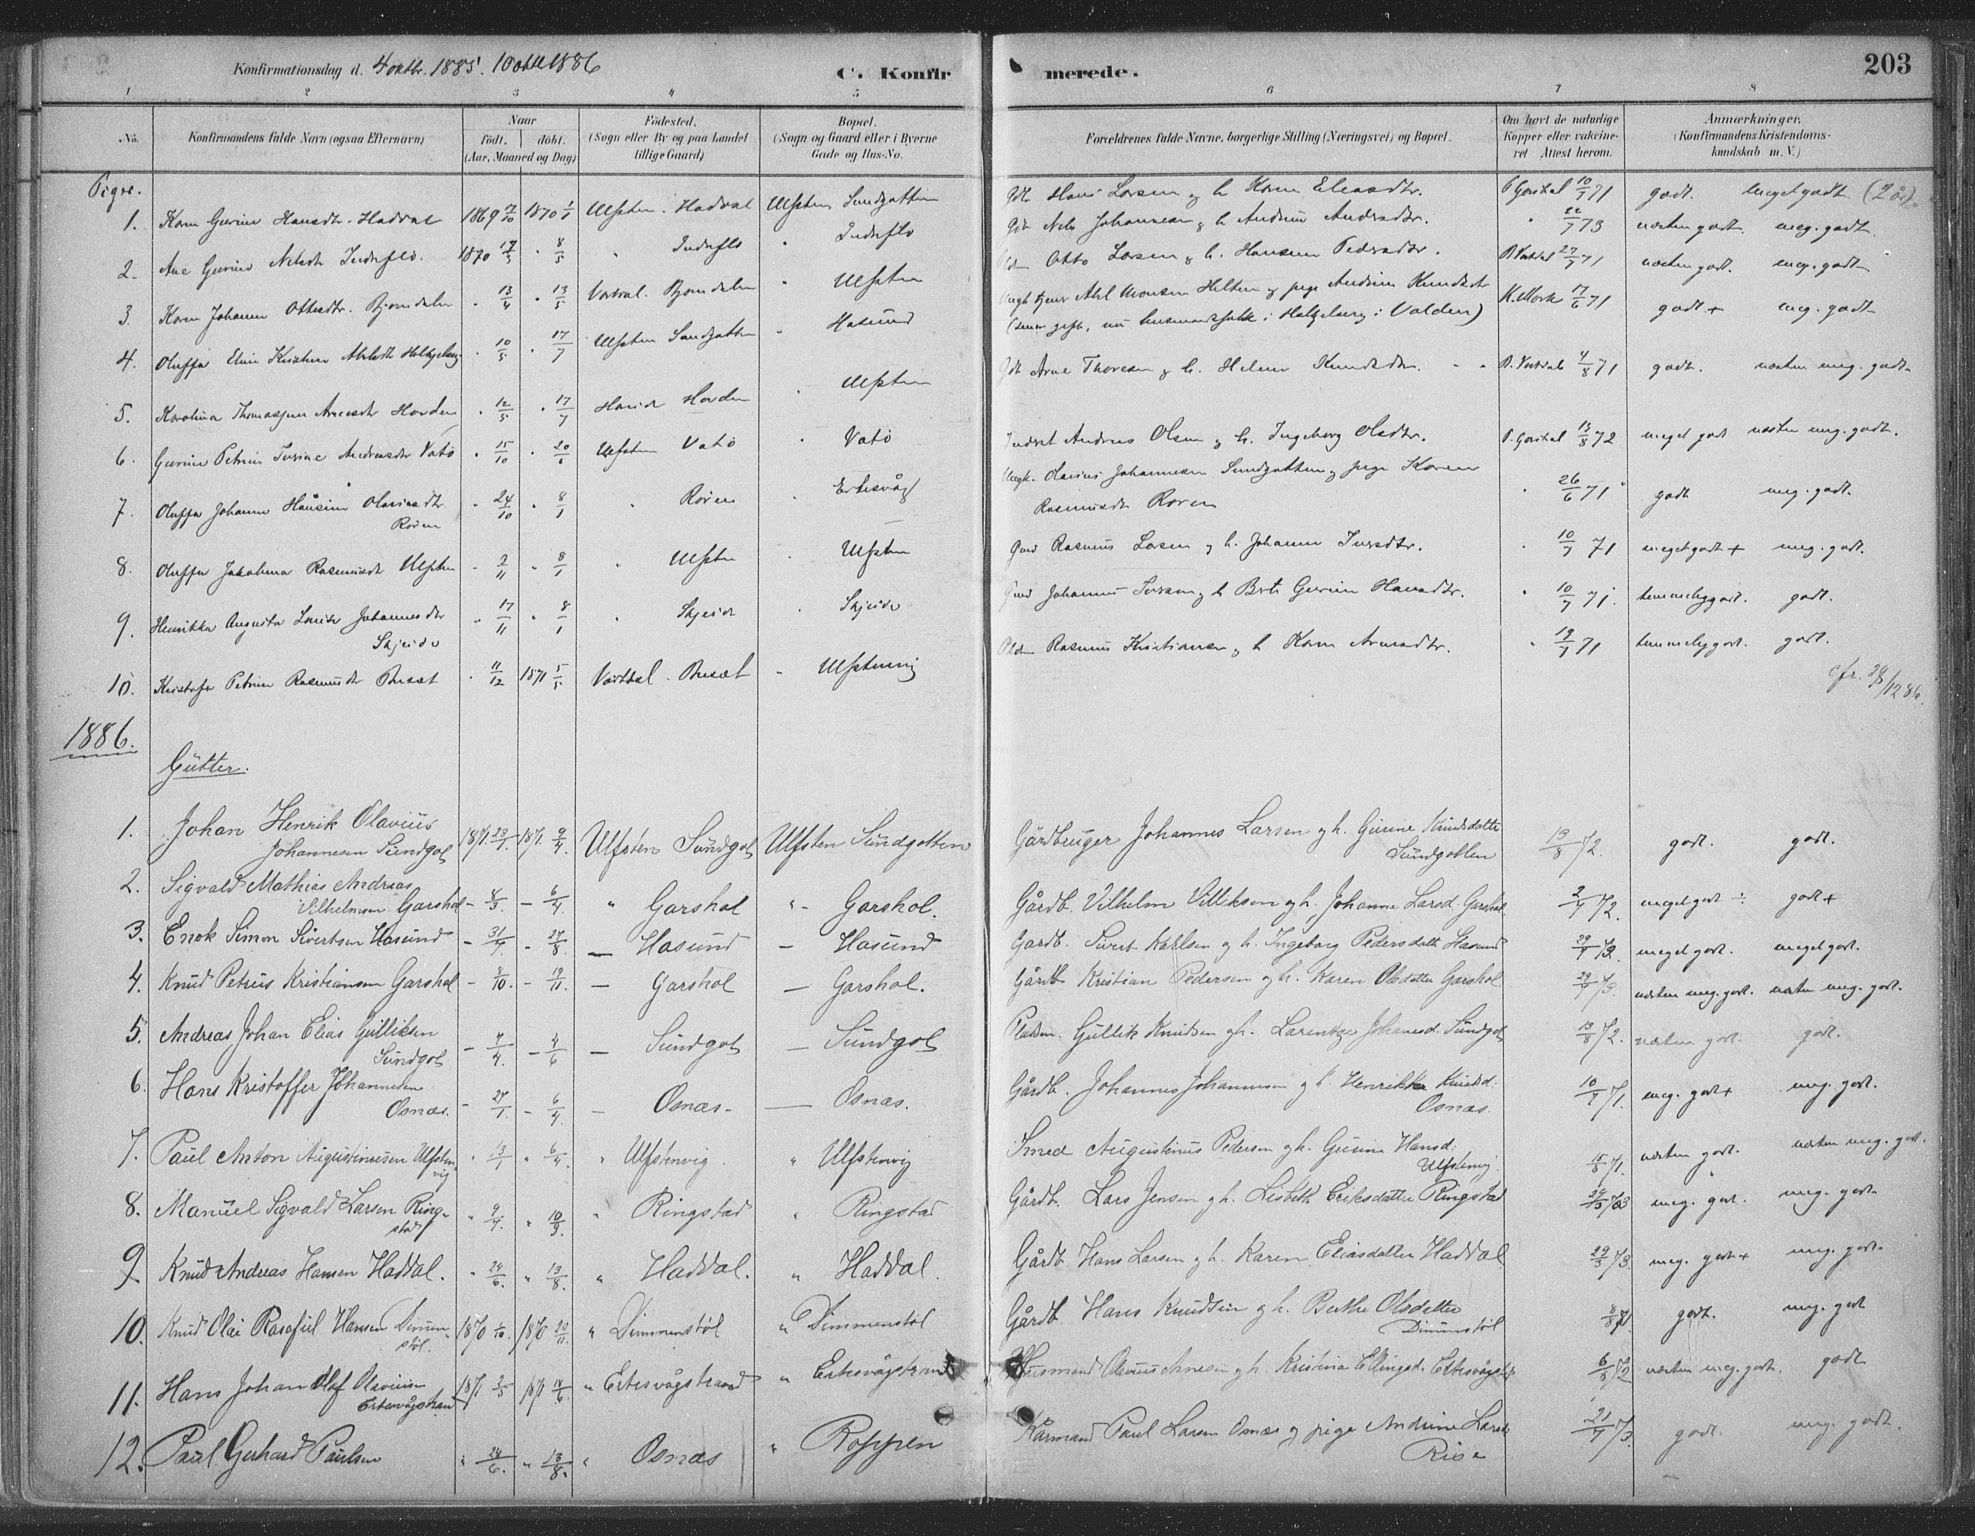 Konfirmationsdag d. 4 oktbr. 1885. 10 oktb 1886 C. Konfir merede. 203
1 2 3 4 5 6 7 8
No. Konfirmandens fulde Navn (ogsaa Efternavn) Naar født. døbt. (Aar, Maaned og Dag) Fødested. (Sogn eller By og paa Landet tillige Gaard) Bopæl. (Sogn og Gaard eller i Byerne Gade og Hus-No. Forældrenes fulde Navne, borgerlige Stilling (Næringsvei) og Bopæl. Om havt de naturlige Kopper eller vaccineret Attest herom. Anmærkninger. (Konfirmandens Kristendomskundskab m. V.)
Piger.
1. Karen Gurine Hansdtr. Haddal 1869 7/10 1870 1/1 Ulfsten. Haddal Ulfsten Sundgotten Hans Larsen og h. Karen Eliasdtr. 10/7 71 godt. meget godt (2 år).
2. Ane Gurine Nilsdt Indreflø. 1870 17/3 " 8/5 " Indreflø " Indreflø Nils Johannesen og h. Andrine Andersdtr. 22/7 73 næsten godt. meg. godt
3. Karen Johanne Ottesdtr. Bjørndalen " 13/4 " 13/5 Vartdal. Bjørndalen " Ulfsten Otto Larsen og h. Hansine Pedersdtr. 27/7 71 næsten godt. meg. godt
4. Oluffa Eline Kristine 10/5 " 17/7 Ulfsten Sundgotten " Hasund Ungk. Abel Monsen Hilten og pige Andrine Knudsdt K. Mork 17/6 71 godt + meg. godt
(senere gift, nu husmandsfolk i Helgeberg i Volden)
5. Karolina Thomasjine Arnesdtr Hovden " 12/5 " 17/7 Hovden " Ulfsten Arne Thoresen og h. Helene Knudsdtr. 4/8 71 godt. næsten meg. godt
6. Gurine Petrine Andreasdtr Vatø " 15/10 " 20/6 Ulfsten Vatø " Vatø Andreas Olsen og h. Ingeborg Olsdtr. 13/8 72 meget godt næsten meg. godt.
7. Oluffa Johanne Hansine Olavisdtr " 24/10 " 8/1 " Røren " Ertesvåg Ungk. Olavius Johannesen Sundgotten og pige Karen 26/6 71 godt meg. godt.
Røren Rasmusdt Røren
8. Oluffa Jakobina Rasmusdt Ulfsten " 2/11 " 8/1 " Ulfsten " Ulfsten Rasmus Larsen og h. Johanne Iversdtr. " 10/7 71 meget godt + meg. godt.
9. Henrikka Augusta Lovise Johannesdtr " 17/11 " 8/1 " Skjeide " Skjeide Johannes Iversen og h. Berte Gurine Hansdtr. " 10/7 71. temmelig godt. godt.
Skjeide
10. Kristofa Petrine Rasmusdt Busæt " 11/12 1871 5/5 Vartdal. Busæt " Ulfstenvig Rasmus Kristiansen og h. Karen Arnesdtr. " 19/7 71 temmelig godt. godt.
cfr. 29/12 86.
1886.
Gutter.
1. Johan Henrik Olavius 1871. 23/1 1871. 9/4 Ulfsten Sundgot Ulfsten Sundgotten Gårdbruger Johannes Larsen og h. Gurine Knudsdatter 13/8 72. godt. godt.
Johannesen Sundgot Sundgotten
2. Sigvald Mathias Andreas
Vilhelmsen Garshol - 8/3 - 6/4 " Garshol " - Garshol. Gårdb. Vilhelm Villiksen og h. Johanne Larsd. Garshol 2/7 72. meget godt ÷ godt +
3. Enok Simon Sivertsen Hasund - 31/7 - 27/8 — Hasund — Hasund Gårdb. Sivert Karlsen og h. Ingeborg Pedersdatt Hasund 29/7 73 meget godt. meget godt.
4. Knud Petrus Kristiansen Garshol - 8/10 - 19/11. — Garshol — Garshol. Gårdb. Kristian Pedersen og h. Karen Olsdatter Garshol 29/7 73. næsten meg. godt. næsten meg. godt.
5. Andreas Johan Elias Gulliksen - 7/4 - 4/6 — Sundgot — Sundgot Pladsm. Gullik Knudsen og h. Larentze Johansd. Sundgot 13/8 72. næsten godt. godt.
Sundgot
6. Hans Kristoffer Johannesen - 27/1 - 6/4 — Osnæs — Osnæs. Gårdb. Johannes Johannesen og h. Henrikke Knudsd. 10/7 71. meg. godt + meg. godt.
Osnæs. Osnæs.
7. Paul Anton Augustinussen Ulfsten- " 13/1 " 6/4 " Ulfstenvig. " Ulfstenvig Smed Augustinus Pedersen og h. Gurine Hansd. 15/8 71. næsten godt. næsten meg. godt.
vig Ulfstenvig.
8. Manuel Sigvald Larsen Ring- " 9/7. " 10/9. " Ringstad " Ringstad Gårdb. Lars Jensen og h. Lisbeth Eriksdatter Ringstad 29/5 73 meg. godt. meg. godt.
stad
9. Knud Andreas Hansen Haddal. " 24/6. " 13/8. " Haddal. " Haddal. Gårdb. Hans Larsen og h. Karen Eliasdatter Haddal 29/5 73. meg. godt + meg. godt.
10. Knud Olai Rasafiel Hansen Dimmen- 1870 1/10. 1870 20/11. " Dimmenstøl " Dimmenstøl Gårdb. Hans Knudsen og h. Berthe Olsdatter 8/8 71. godt. meg. godt
støl. Dimmenstøl
11. Hans Johan Olaf Olaviusen 1871 2/5 1871 14/6. " Ertesvågstrand " Ertesvågstrand Husmand Olavius Arnesen og h. Kristina Ellingsd. Ertesvågstr 6/8 72 næsten meg. godt. godt
Ertesvågstrand
12. Paul Gerhard Paulsen " 24/6. " 13/8. " Osnæs " Roppen Kårmand Paul Larsen Osnæs og pige Andrine Larsd 21/7 73 godt. meg. godt.
Rise